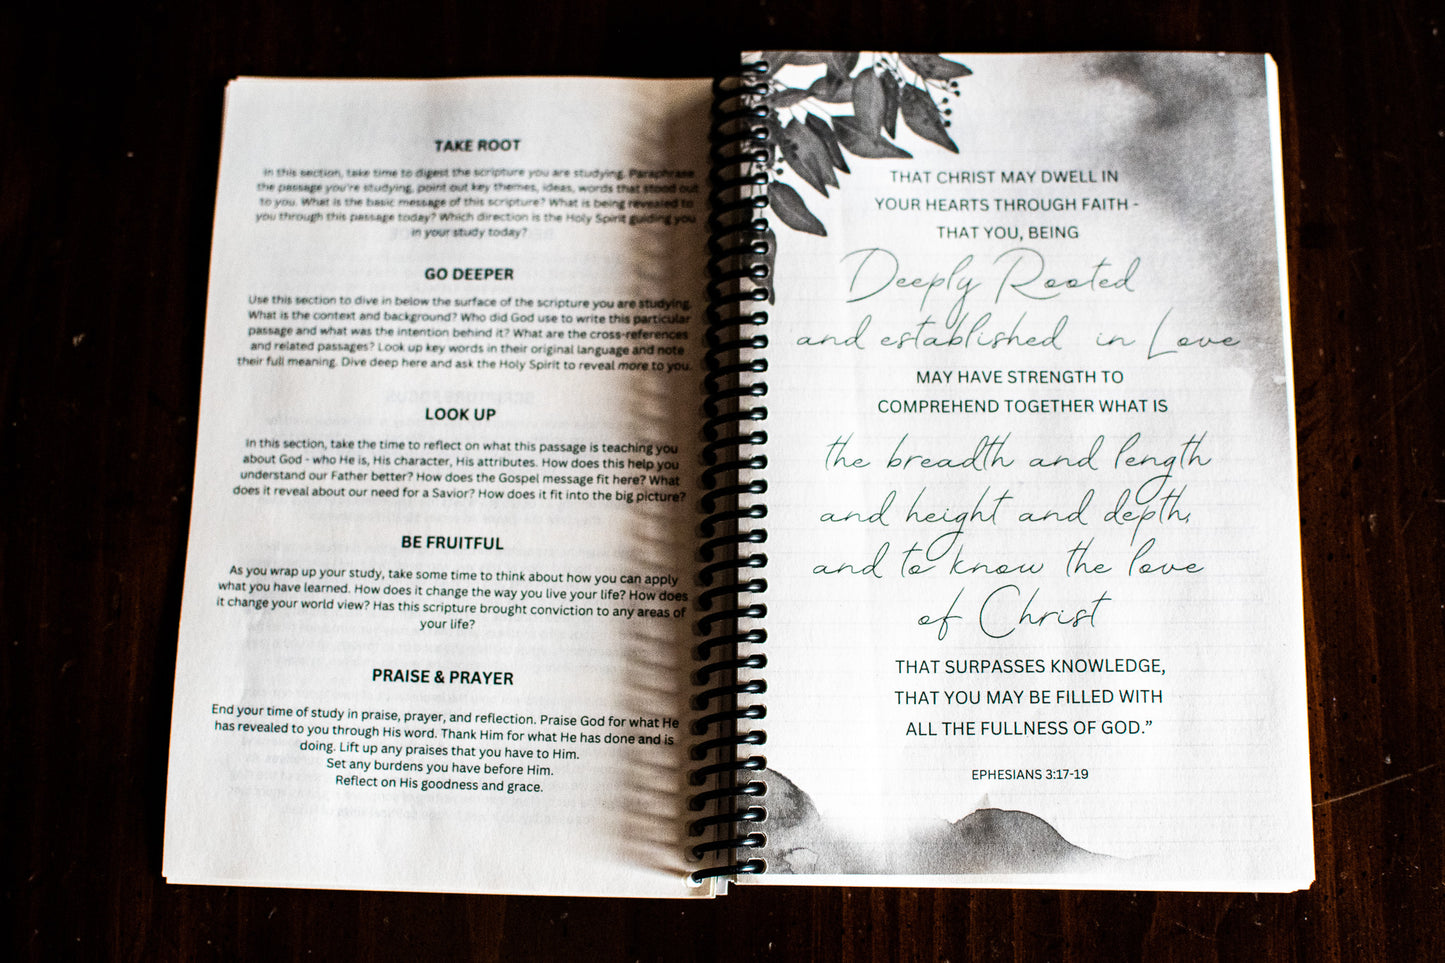 TAKE ROOT
In this section, take time to digest the scripture you are studying. Paraphrase
the passage you're studying, point out key themes, ideas, words that stood out
to you. What is the basic message of this scripture? What is being revealed to
you through this passage today? Which direction is the Holy Spirit guiding you
in your study today?
GO DEEPER
Use this section to dive in below the surface of the scripture you are studying.
What is the context and background? Who did God use to write this particular
passage and what was the intention behind it? What are the cross-references
and related passages? Look up key words in their original language and note
their full meaning. Dive deep here and ask the Holy Spirit to reveal more to you.
LOOK UP
In this section, take the time to reflect on what this passage is teaching you
about God - who He is, His character, His attributes. How does this help you
understand our Father better? How does the Gospel message fit here? What
does it reveal about our need for a Savior? How does it fit into the big picture?
BE FRUITFUL
As you wrap up your study, take some time to think about how you can apply
what you have learned. How does it change the way you live your life? How does
it change your world view? Has this scripture brought conviction to any areas of
your life?
PRAISE & PRAYER
End your time of study in praise, prayer, and reflection. Praise God for what He
has revealed to you through His word. Thank Him for what He has done and is
doing. Lift up any praises that you have to Him.
Set any burdens you have before Him.
Reflect on His goodness and grace.
THAT CHRIST MAY DWELL IN
YOUR HEARTS THROUGH FAITH -
THAT YOU, BEING
Deeply Rooted
and established in Love
MAY HAVE STRENGTH TO
COMPREHEND TOGETHER WHAT IS
the breadth and length
and height and depth,
and to know the love
of Christ
THAT SURPASSES KNOWLEDGE,
THAT YOU MAY BE FILLED WITH
ALL THE FULLNESS OF GOD.”
EPHESIANS 3:17-19